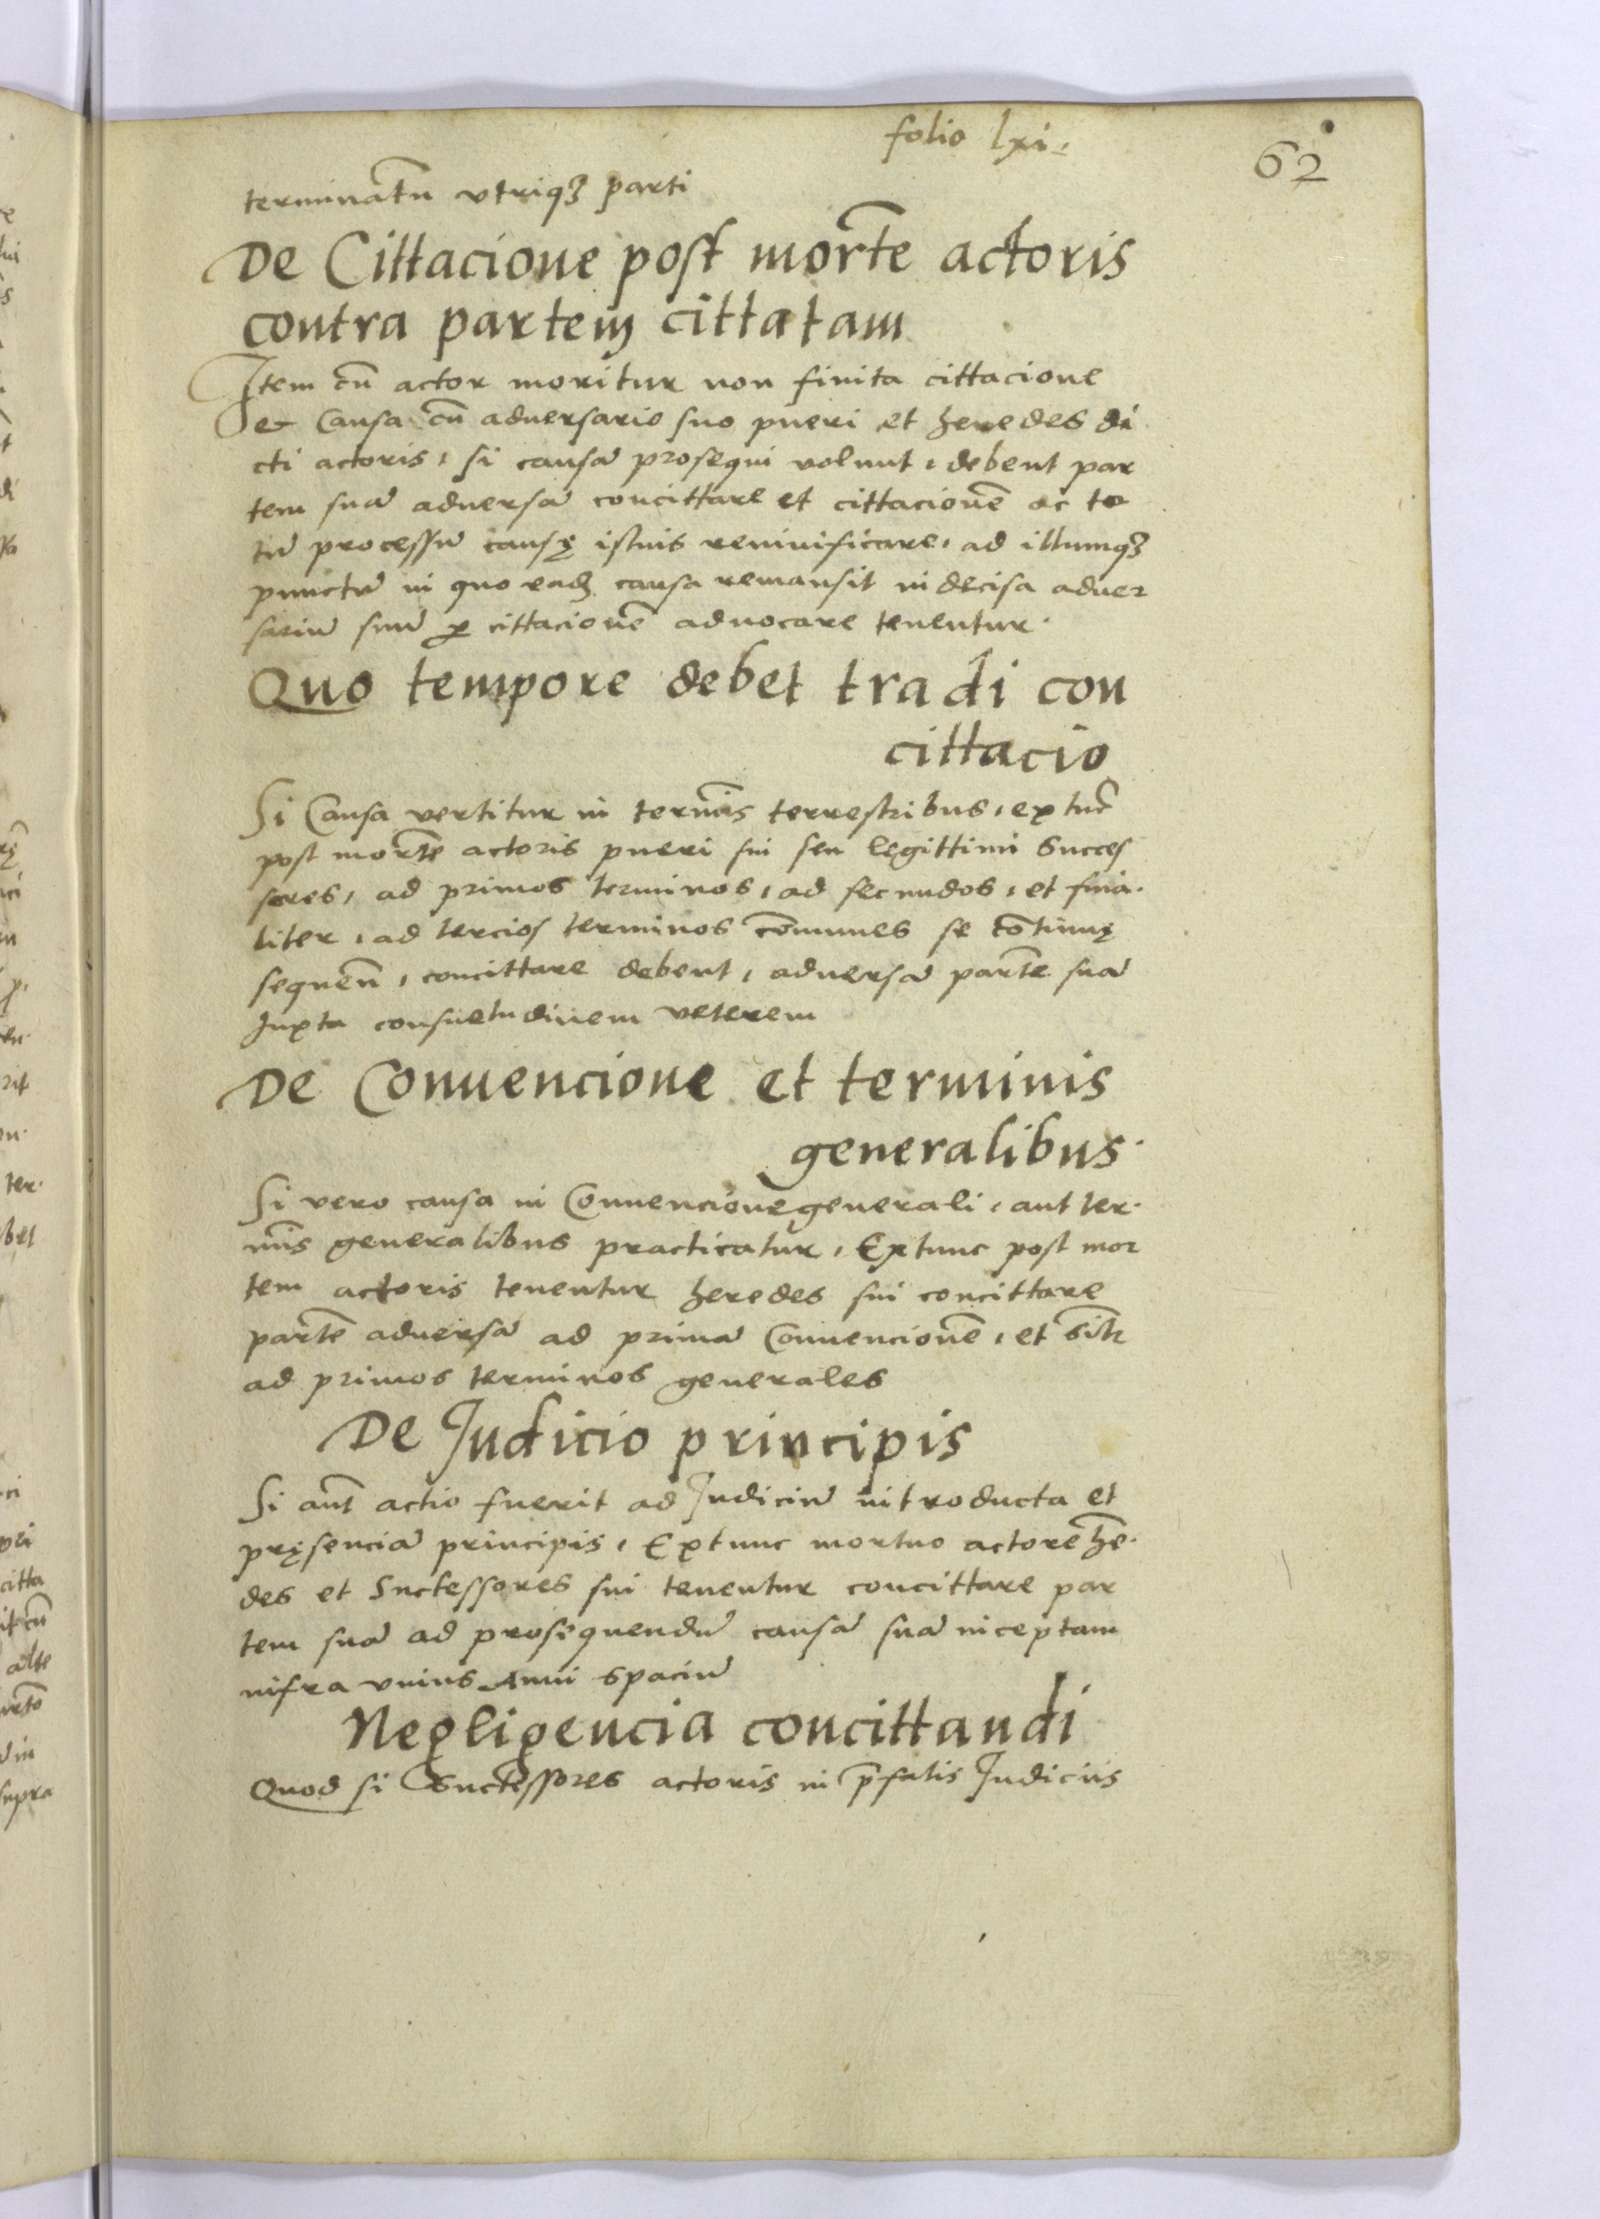 folio lxi.
62
terminatū vtriqꝫ parti
De Cittacione post mortē actoris
contra partem cittatam
Item cū actor moritur non finita cittacione
et Causa cū aduersario suo pueri et heredes di
cti actoris, si causā prosequi volunt, debent par
tem suā aduersā concittare et cittacionē ac to
tū processū causę istius reuiuificare, ad illumqꝫ
punctū in quo eadꝫ causa remansit indecisa aduer
sariū suū ꝑ cittacionē aduocare tenentur.
Quo tempore debet tradi con
cittacio
Si Causa vertitur in terminis terrestribus, extūc
post mortē actoris pueri sui seu legittimi Succes
sores, ad primos terminos, ad secundos, et fina.
liter, ad tercios terminos cōmunes se cōtinuę
sequen̄, concittare debent, aduersā partē suā
Juxta consuetudinem veterem
De Conuencione et terminis
generalibus.
Si vero causa in Conuencione generali, aut ter.
mīs generalibus practicatur, Extunc post mor
tem actoris tenentur heredes sui concittare
partē aduersā ad primā Conuencionē, et Silr
ad primos terminos generales
De Judicio principis
Si aūt actio fuerit ad Judiciū introducta et
pręsenciā principis, Extunc mortuo actore hē.
des et Suctessores sui tenentur concittare par
tem suā ad prosequendū causā suā inceptam
infra vnius Anni spaciū
Negligencia concittandi
Quod si Suctessores actoris in p̄fatis Judiciis